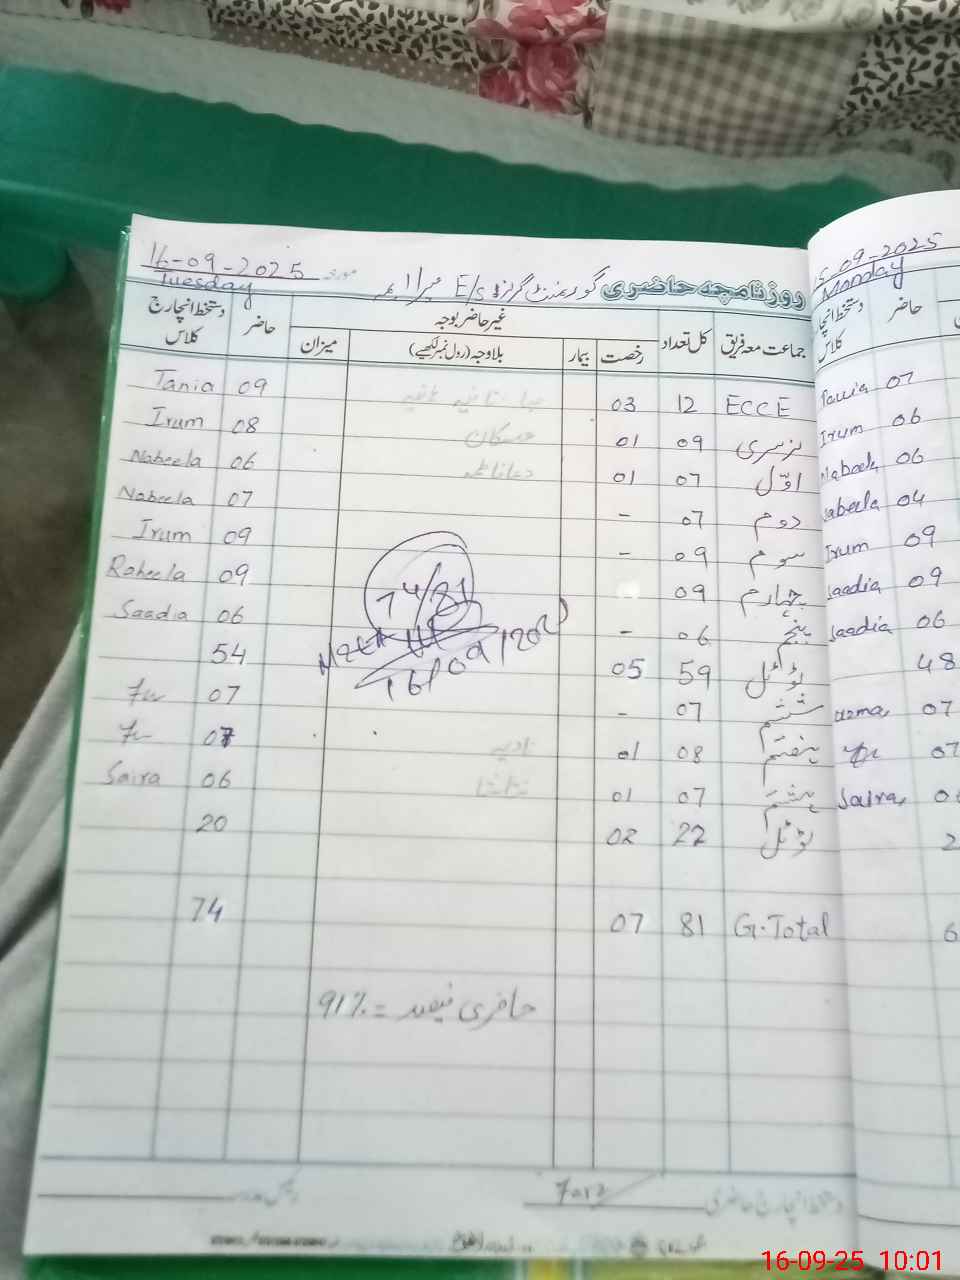 16-09-2025 مورخہ
Tuesday
روزنامچہ حاضری گورنمنٹ گرلز E/S
جماعت معہ فریق کل تعداد غیر حاضر بوجہ حاضر دستخط انچارج کلاس
رخصت بیمار بلاوجہ (رول نمبر لکھیے) میزان
ECCE 12 03 09 Tania
نرسری 09 01 مسکان 08 Irum
اوّل 07 01 06 Nabeela
دوم 07 - 07 Nabeela
سوم 09 - 09 Irum
چہارم 09 09 Raheela
پنجم 06 - 06 Saadia
ٹوٹل 59 05 54
ششم 07 - 07
ہفتم 08 01 نادیہ 07
ہشتم 07 01 06 Saira
ٹوٹل 22 02 20
G.Total 81 07 74
74/81
16/09/202
حاضری فیصد = 91%
دستخط انچارج حاضری
15-09-2025
Monday
حاضر دستخط انچارج کلاس
07 Tania
06 Irum
06 Nabeela
04 Nabeela
09 Irum
09 Saadia
06 Saadia
48
07 uzma
07
Saira
16-09-25 10:01